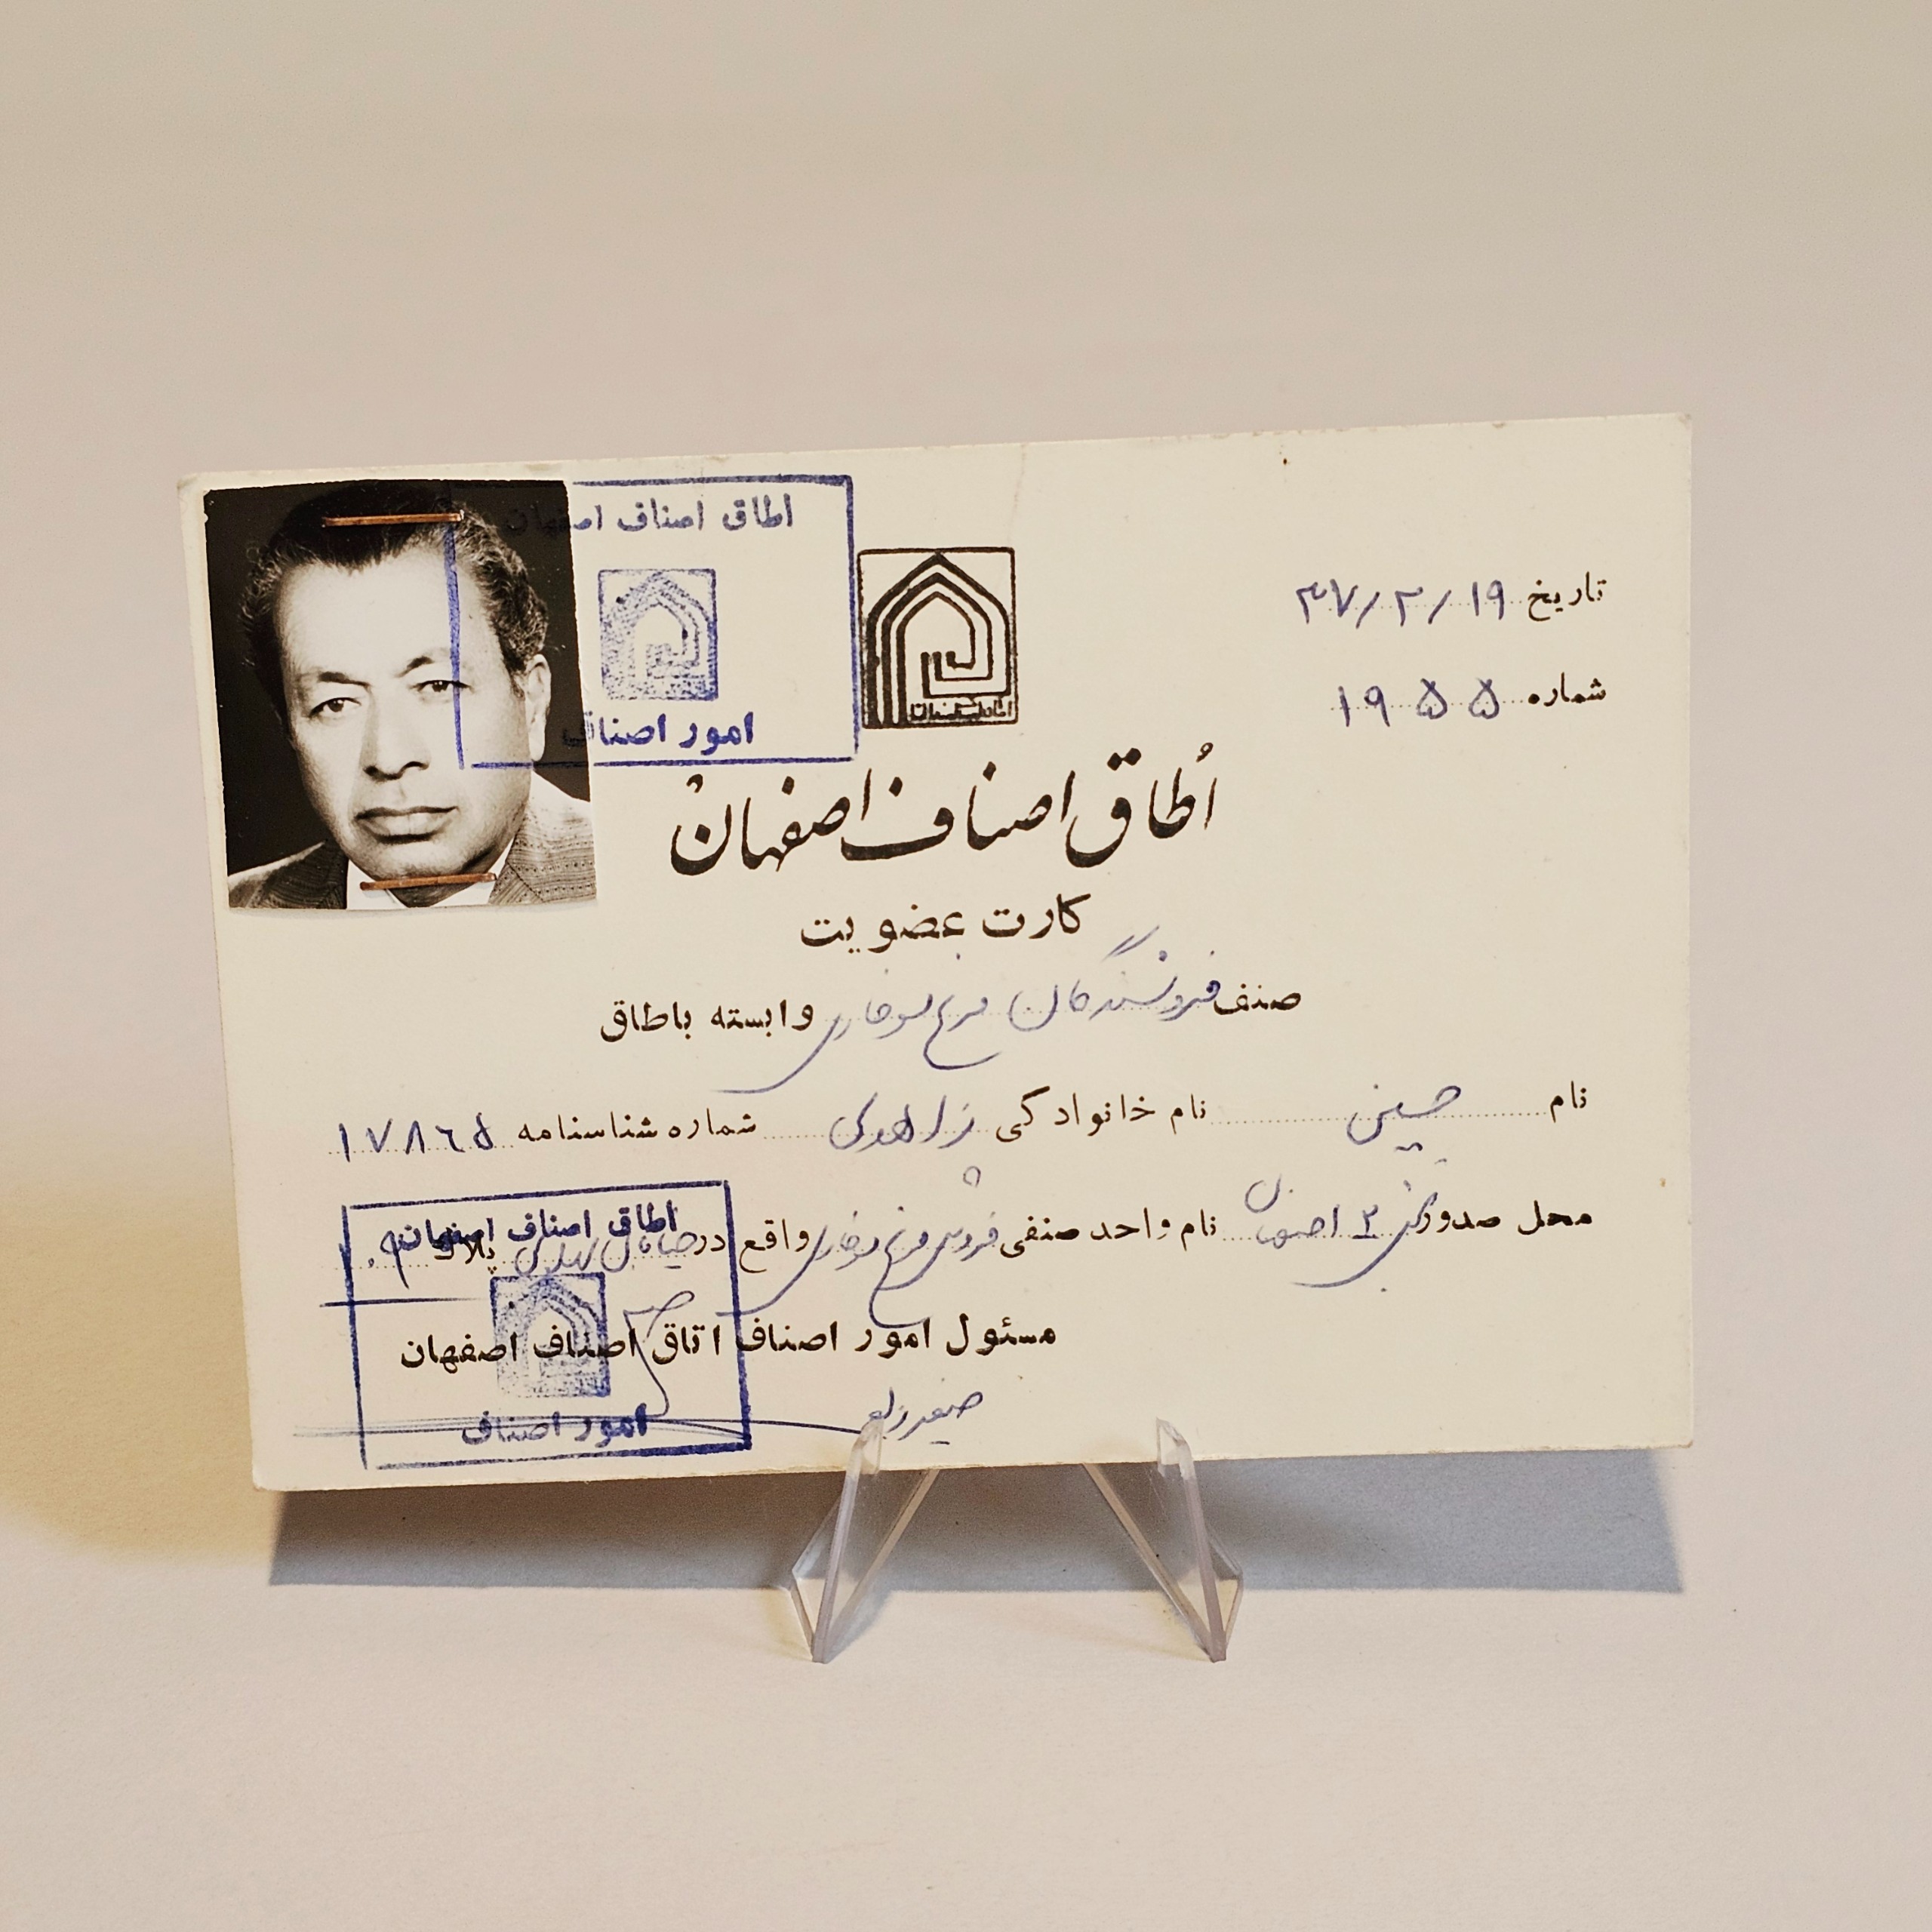 اطاق اصناف اصفهان
امور اصناف
تاریخ ۳۷/۲/۱۹
شماره ۱۹۵۵
اُطاق اصناف اصفهان
کارت عضویت
صنف فروشندگان مرغ سوخاری وابسته باطاق
نام حسین نام خانوادگی زاهدی شماره شناسنامه ۱۷۸۶۵
محل صدور ۲ اصفهان نام واحد صنفی فروش مرغ سوخاری واقع در خیابان پلاک
مسئول امور اصناف اتاق اصناف اصفهان
اطاق اصناف اصفهان
امور اصناف